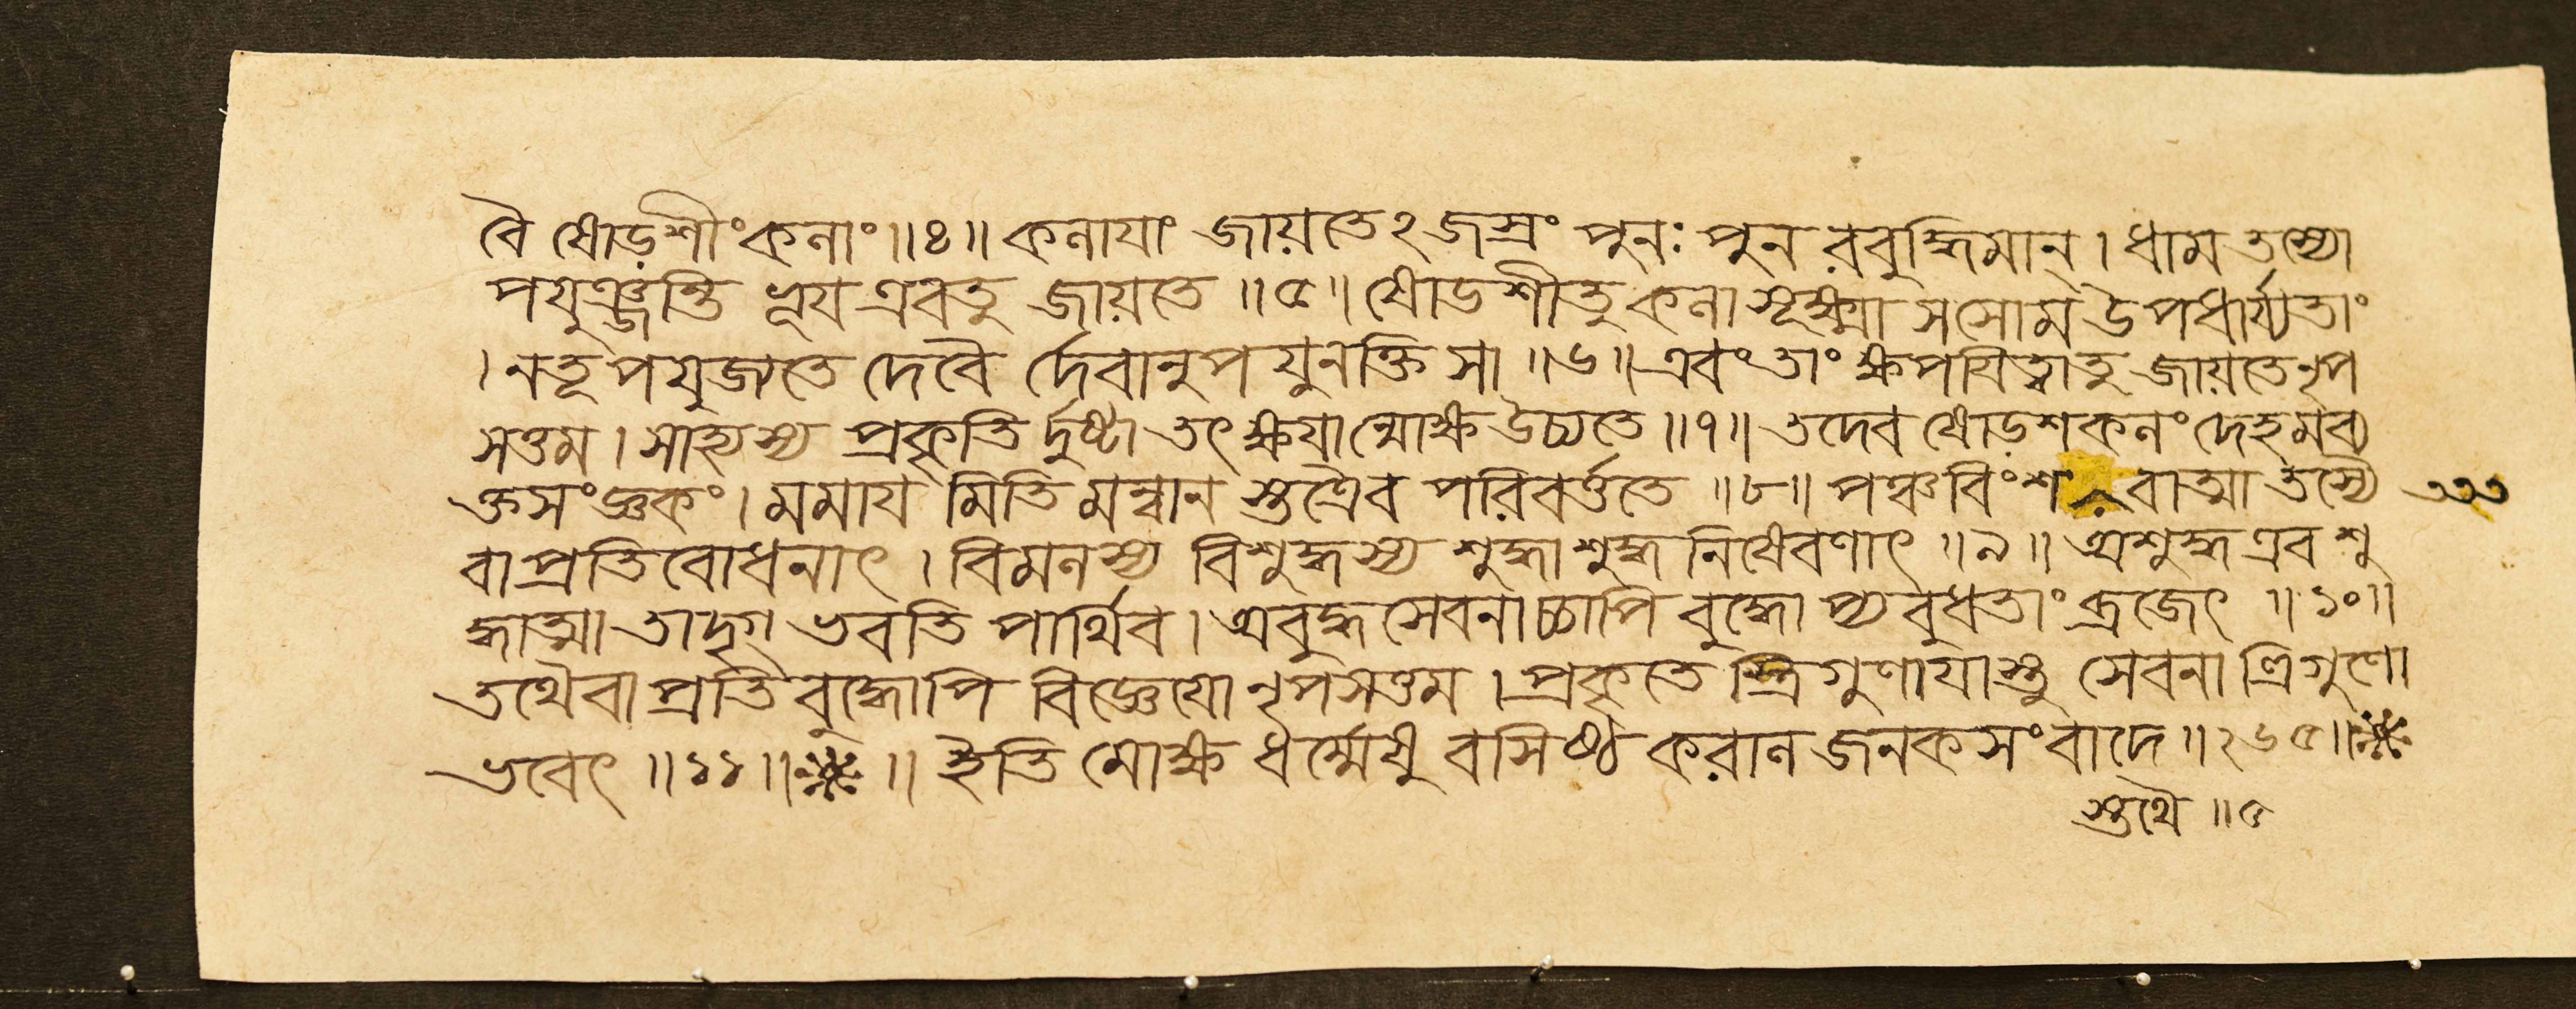 বৈ ষোড়শীং কলাং ॥৪॥ কলাযাং জায়তেঽজস্রং পুনঃ পুনরবুদ্ধিমান্ । ধাম তস্যো
পযুঞ্জন্তি ভূয এবতু জায়তে ॥৫॥ ষোডশীতু কলা সূক্ষ্মা স সোম উপধার্য্যতাং
। নতূপযুজ্যতে দেবৈ র্দেবানুপযুনক্তি সা ॥৬॥ এবং তাং ক্ষপযিত্বাতু জায়তে নৃপ
সত্তম । সাহ্যস্য প্রকৃতি র্দৃষ্টা তৎ ক্ষযান্মোক্ষ উচ্যতে ॥৭॥ তদেব ষোড়শকলং দেহমব্য
ক্তসংজ্ঞকং । মমায মিতি মন্বান স্তত্রৈব পরিবর্ত্ততে ॥৮॥ পঞ্চবিংশ বাত্মা তস্যৈ
বা প্রতিবোধনাৎ । বিমলস্য বিশুদ্ধস্য শুদ্ধাশুদ্ধ নিষেবণাৎ ॥৯॥ অশুদ্ধ এব শু
দ্ধাত্মা তাদৃগ্ ভবতি পার্থিব । অবুদ্ধ সেবনাচ্চাপি বুদ্ধো প্যবুধতাং ব্রজেৎ ॥১০॥
তথৈবা প্রতিবুদ্ধোপি বিজ্ঞেযো নৃপসত্তম । প্রকৃতে স্ত্রিগুণাযাস্তু সেবনা ত্রিগুণো
ভবেৎ ॥১১॥ ॥ ইতি মোক্ষ ধর্ম্মেষু বসিষ্ঠ করাল জনক সংবাদে ॥২৬৫॥